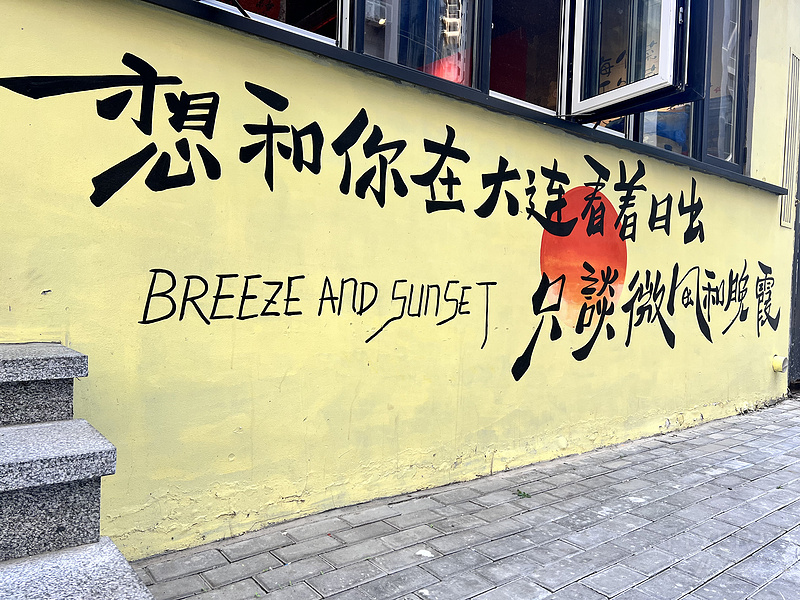 想和你在大连看着日出
BREEZE AND SUNSET
只談微風和晚霞